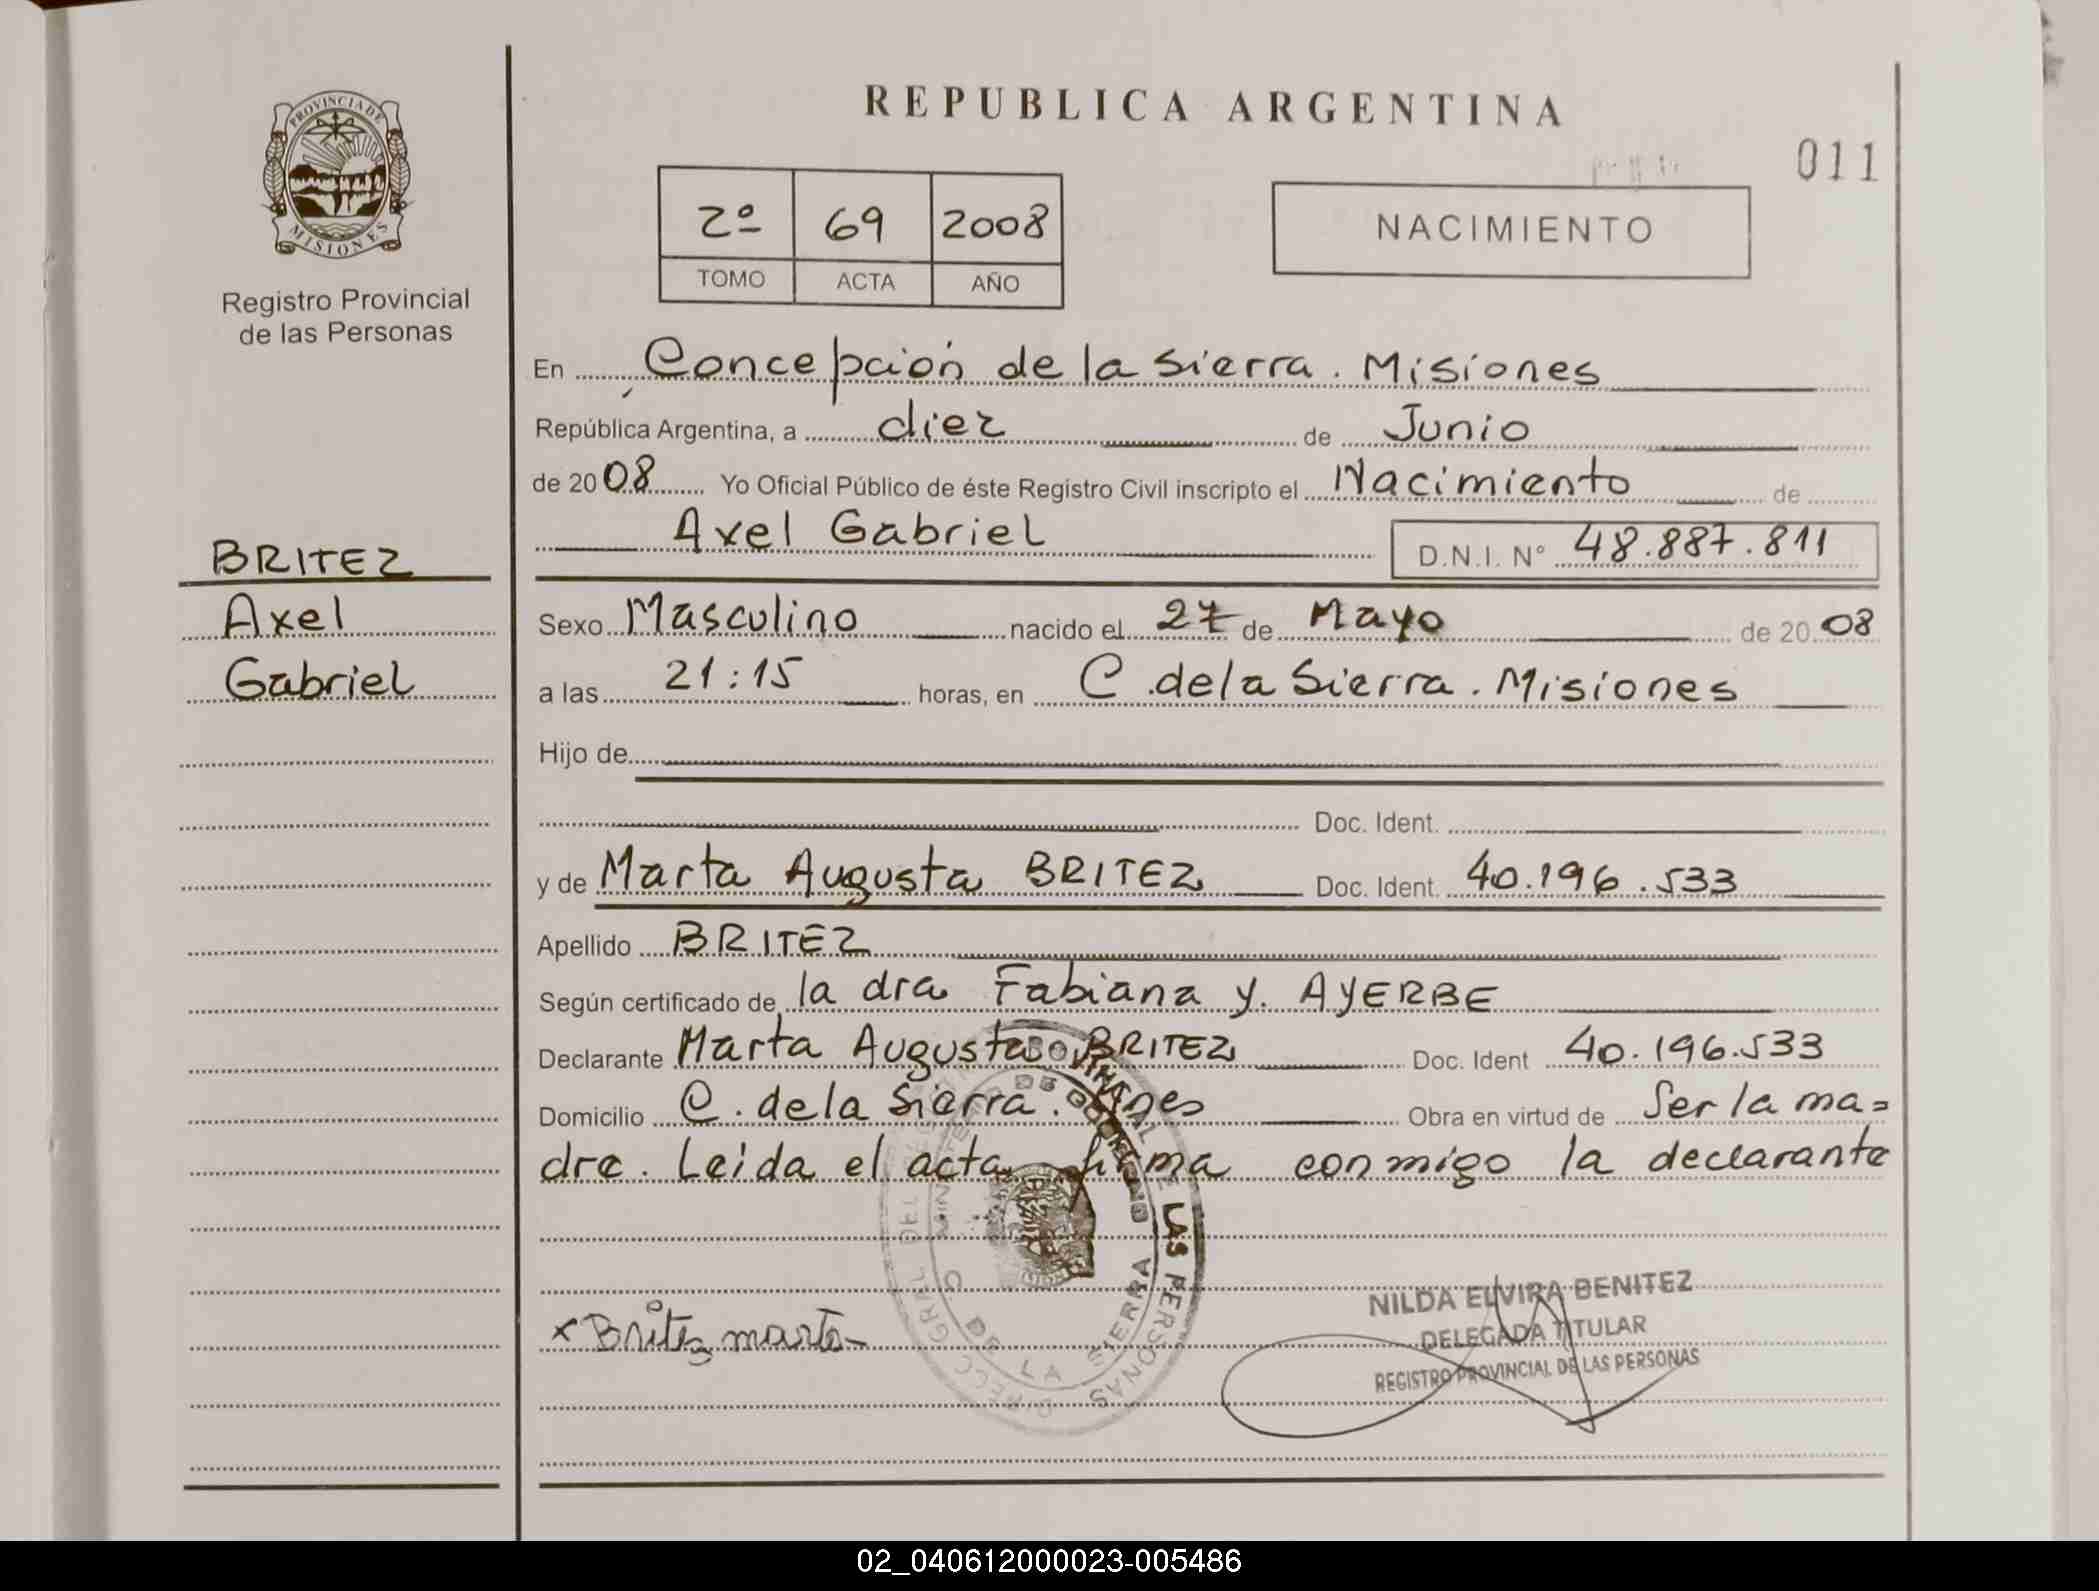 REPUBLICA ARGENTINA
011
PROVINCIA DE
MISIONES
Registro Provincial
de las Personas
2º 69 2008
TOMO ACTA AÑO
NACIMIENTO
En Concepción de la Sierra. Misiones
República Argentina, a diez de Junio
de 2008 Yo Oficial Público de éste Registro Civil inscripto el Nacimiento de
Axel Gabriel D.N.I. Nº 48.887.811
BRITEZ
Axel
Gabriel
Sexo Masculino nacido el 27 de Mayo de 2008
a las 21:15 horas, en C. de la Sierra. Misiones
Hijo de
Doc. Ident.
y de Marta Augusta BRITEZ Doc. Ident. 40.196.533
Apellido BRITEZ
Según certificado de la dra Fabiana Y. AYERBE
Declarante Marta Augusta BRITEZ Doc. Ident 40.196.533
Domicilio C. de la Sierra. Mnes Obra en virtud de Ser la ma=
dre. Leida el acta firma conmigo la declarante
x Britez marta
DE LAS PERSONAS
MINISTERIO DE GOBIERNO
C DE LA SIERRA
NILDA ELVIRA BENITEZ
DELEGADA TITULAR
REGISTRO PROVINCIAL DE LAS PERSONAS
02_040612000023-005486